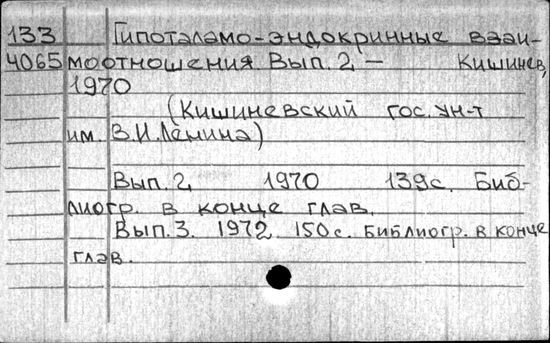 133 Гипоталамо-эндокринные взаи-
4065 моотношения Вып. 2 – Кишинев,
1970
(Кишиневский гос. ун-т
им. В.И.Ленина)
Вып. 2 1970 139с. Биб-
лиогр. в конце глав.
Вып. 3. 1972 150с. Библиогр. в конце
глав.